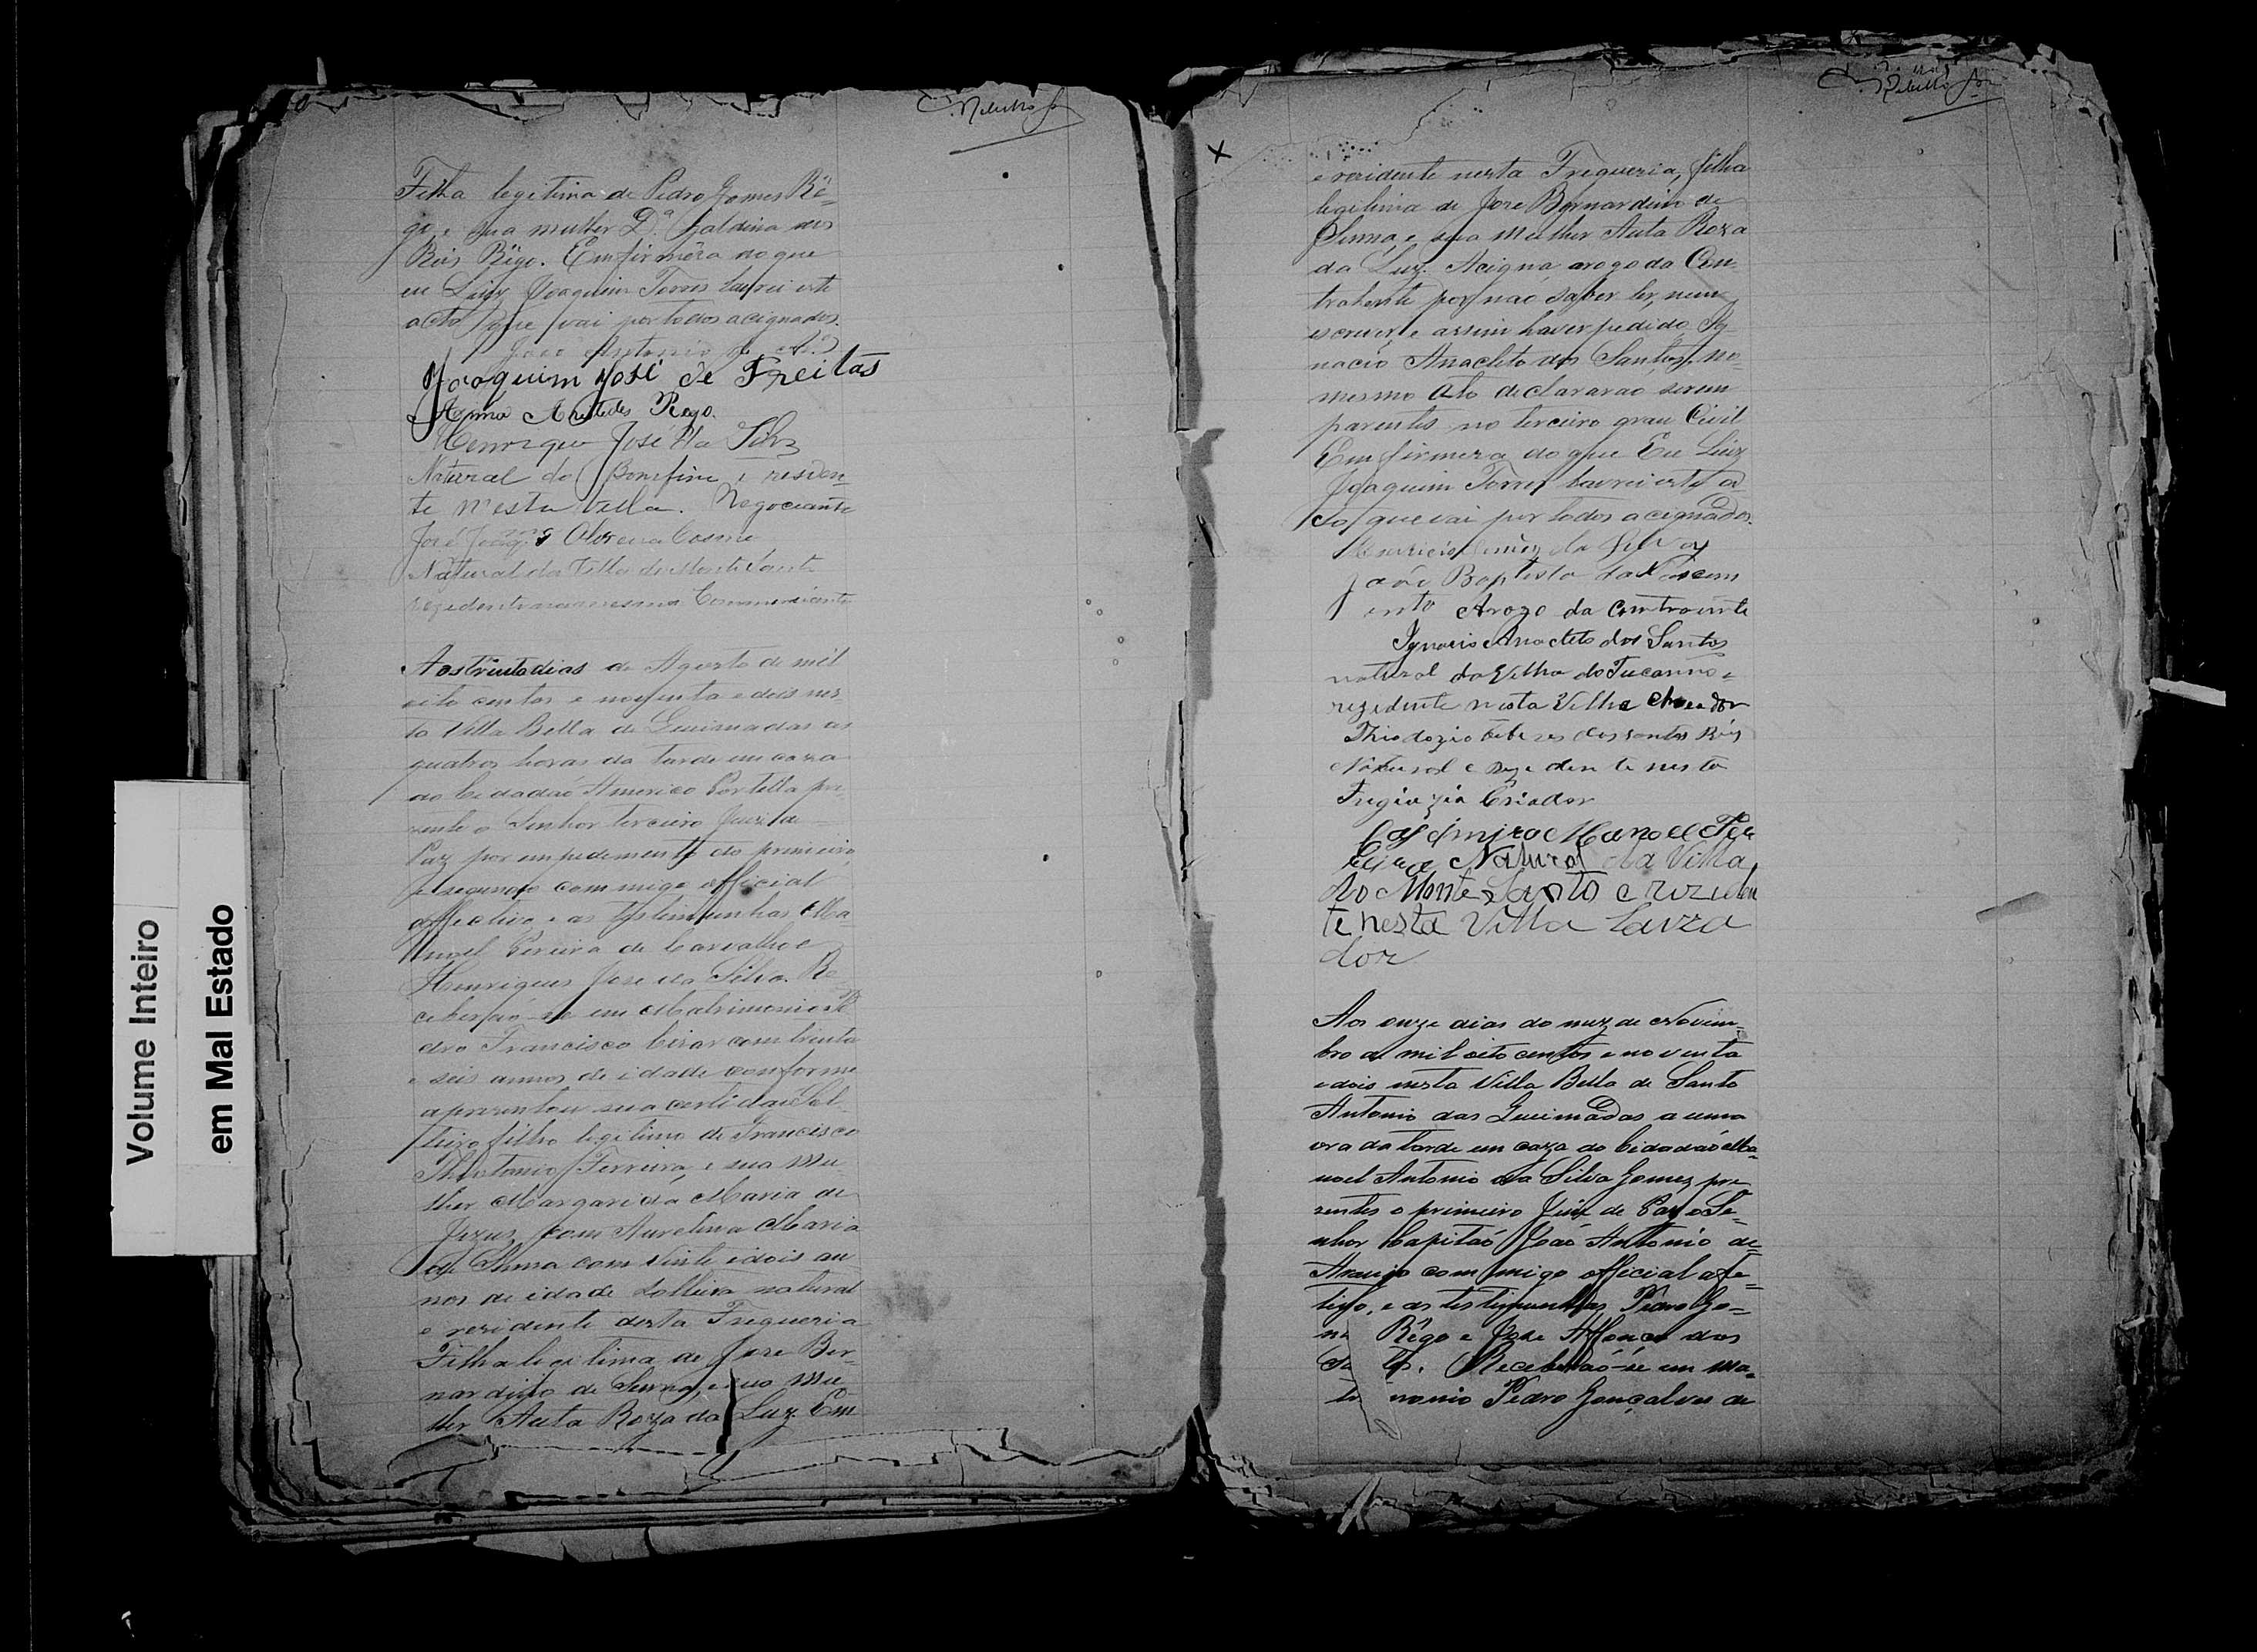 Volume Inteiro
em Mal Estado
Rebello
Filha legitima de Pedro Gomes Rê=
go e sua mulher D.ª Galdina dos
Reis Rêgo. Em firmêza do que
eu Luiz Joaquim Torres lavrei este
acto que vai por todos acignados.
João Antonio de
Joaquim José de Freitas
Anna Aristides Rego.
Henrique José da Silva
Natural do Bomfim e residen=
te n'esta Villa. Negociante
José Joaq.m Oliveira Cosme
Natural da Villa de Monte Santo
rezidente na mesma Commerciante
Aos trinta dias de Agosto de mil
oito centos e noventa e dois nes-
ta Villa Bella de Queimadas as
quatros horas da tarde em caza
do Cidadaõ Americo Portella pre-
zente o Senhor terceiro Juiz de
Paz por empedimento do primeiro,
e segundo com migo official
effectivo, e as testimunhas Ma-
noel Pereira de Carvalho e
Henriques Jose da Silva. Re-
ceberaõ-se em Matrimonio Pe
dro Francisco Cezar com trinta
e seis annos de idade conforme
aprezentou sua certidaõ Sol-
teiro filho legitimo de Francisco
Antonio Ferreira, e sua Mu-
lher Margarida Maria de
Jezus, com Aurelina Maria
de Senna com vinte e dois an
nos de idade Solteira natural
e rezidente desta Freguezia
Filha legitima de Jose Ber-
nardino de Senna, e sua Mu-
lher Auta Roza da Luz. Em
Rebello
e rezidente nesta Freguezia, filha
legitima de Jose Bernardino de
Senna e sua Mulher Auta Roza
da Luz. Acigna arogo da Con-
trahente por naõ saber ler, nem
escrever, e assim haver pedido, Ig-
nacio Anacleto dos Santos, no
mesmo Ato declararao serem
parentes no terceiro grau Civil
Em firmeza do que Eu Luiz
Joaquim Torres lavrei este a-
cto que vai por todos acignados.
da Silva
João Baptista do Nascem
ento Arogo da Contraente
Ignacio Anacleto dos Santos
natural da Velha do Tucanno e
rezidente nesta Velha Creador
Thiodozio dos santos Reis
Natural e rezedente nesta
Fregiuzia Criador
Casimiro Manoel Fer
reira Natural da Villa
do Monte Santo e reziden
te nesta Villa Lavra
dor
Aos onze dias do mez de Novem-
bro de mil oito centos e noventa
e dois nesta Villa Bella de Santo
Antonio das Queimadas a uma
ora da tarde em caza do Cidadaõ Ma-
noel Antonio da Silva Gomes, pre
zentes o primeiro Juiz de Paz o Se-
nhor Capitaõ João Antonio de
Araujo com migo official afe-
tivo, e as testimunhas Pedro Go-
Rêgo e Jose Affonço dos
Receberaõ-se em Ma-
Pedro Gonçalves de